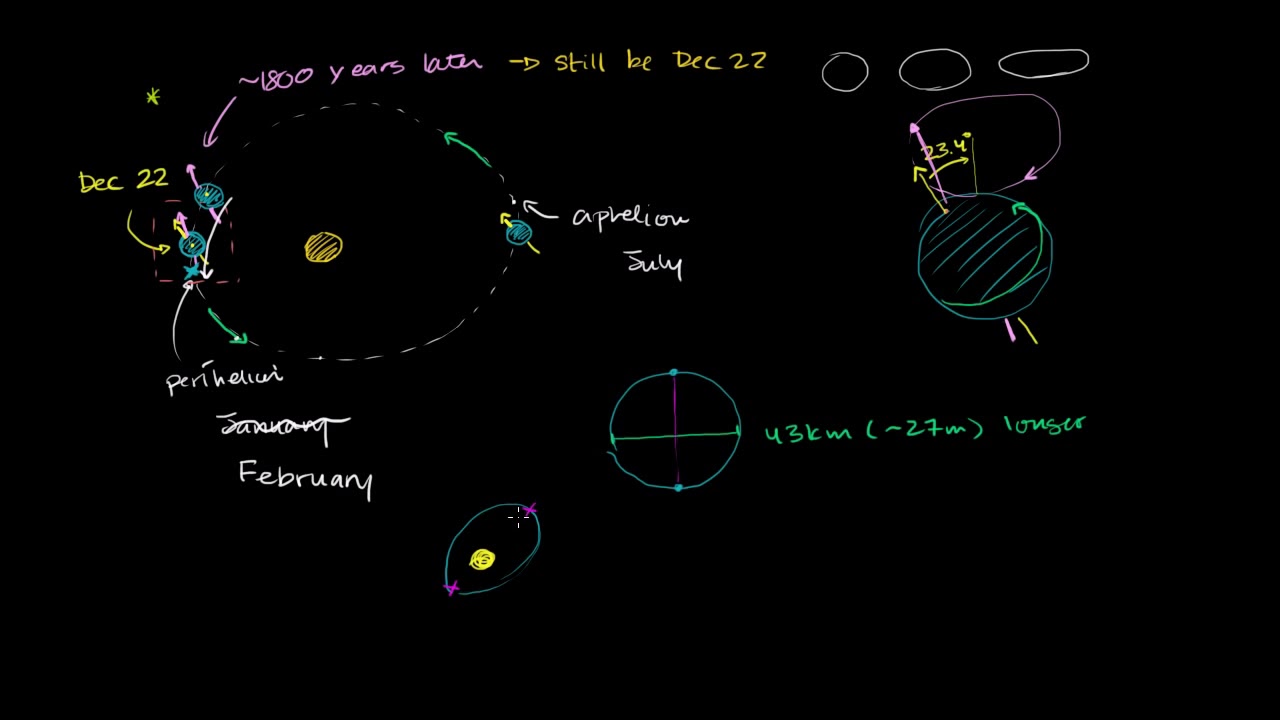 ~1800 years later → still be Dec 22
23.4°
Dec 22
aphelion
July
perihelion
January
February
43km (~27m) longer